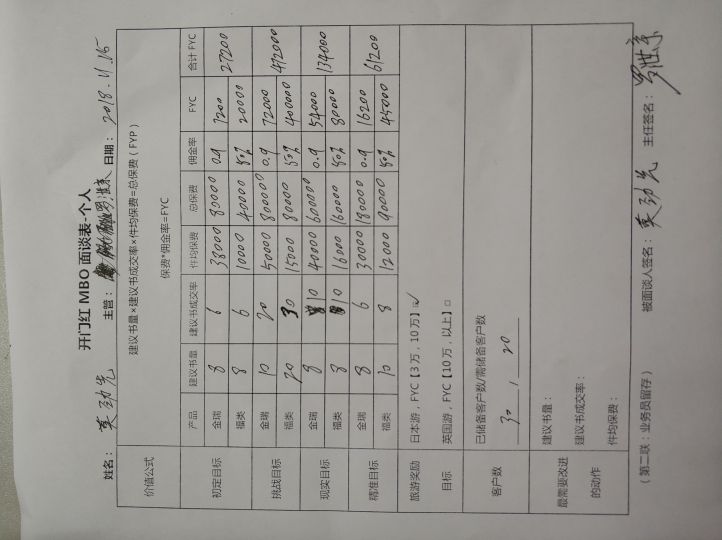 开门红 MBO 面谈表-个人
姓名： 主管： 日期： 2018.11.15
价值公式 建议书量×建议书成交率×件均保费=总保费（FYP）
保费*佣金率=FYC
产品 建议书量 建议书成交率 件均保费 总保费 佣金率 FYC 合计 FYC
初定目标 金瑞 8 6 38000 80000 0.9 7200 27200
福类 8 6 10000 40000 50% 20000
挑战目标 金瑞 10 20 50000 800000 0.9 72000 472000
福类 20 30 15000 80000 50% 400000
现实目标 金瑞 8 10 40000 600000 0.9 54000 134000
福类 8 10 16000 160000 50% 80000
精准目标 金瑞 8 6 30000 180000 0.9 16200 61200
福类 10 8 12000 90000 50% 45000
旅游奖励 日本游，FYC【3 万，10 万】☑
目标 英国游，FYC【10 万，以上】□
客户数 已储备客户数/需储备客户数
30 / 20
最需要改进 建议书量：
的动作 建议书成交率：
件均保费：
（第二联：业务员留存） 被面谈人签名： 主任签名：